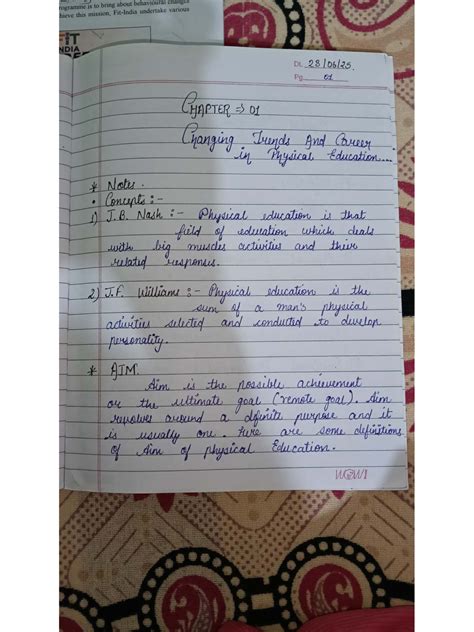 Programme is to bring about behavioural changes
achieve this mission, Fit-India undertake various
FIT
INDIA
Dt. 28/06/25.
Pg. 01
CHAPTER ⇒ 01
Changing Trends And Career
in Physical Education...
* Notes.
• Concepts :-
1) J.B. Nash :- Physical education is that
field of education which deals
with big muscles activities and their
related responses.
2) J.F. Williams :- Physical education is the
sum of a man's physical
activities selected and conducted to develop
personality.
* AIM.
Aim is the possible achievement
or the ultimate goal (remote goal). Aim
revolves around a definite purpose and it
is usually one. Here are some definitions
of Aim of physical Education.